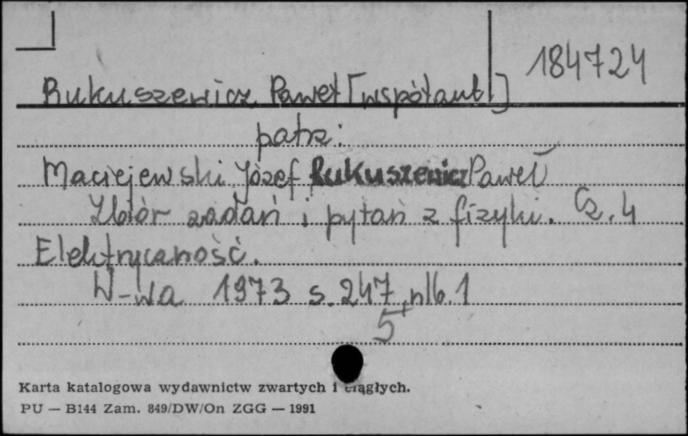 184724
Rukuszewicz Paweł [współaut.]
patrz:
Maciejewski Józef Rukuszewicz Paweł
Zbiór zadań i pytań z fizyki. Cz. 4
Elektryczność.
W-wa 1973 s. 247, nlb. 1
5
Karta katalogowa wydawnictw zwartych i ciągłych.
PU — B144 Zam. 849/DW/On ZGG — 1991